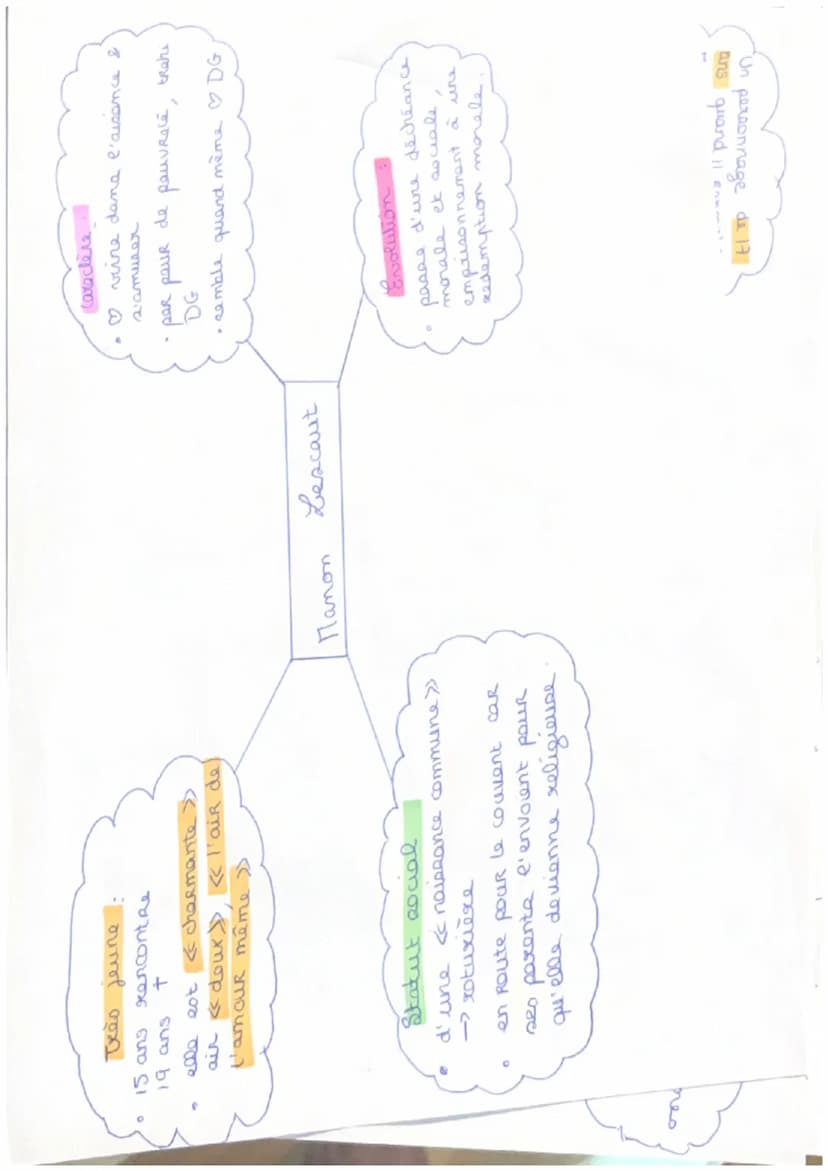 Très jeune :
• 15 ans rencontre
19 ans †
• elle est « charmante »
air « doux », « l'air de
l'amour même »
Caractère :
• ♡ vivre dans l'aisance &
s'amuser
• par peur de pauvreté, trahi
DG
• semble quand même ♡ DG
Manon Lescaut
Statut social
• d'une « naissance commune »
→ roturière
• en route pour le couvent car
ses parents l'envoient pour
qu'elle devienne religieuse.
Évolution :
• passe d'une déchéance
morale et sociale,
emprisonnement à une
rédemption morale.
Un personnage de 17
ans quand il